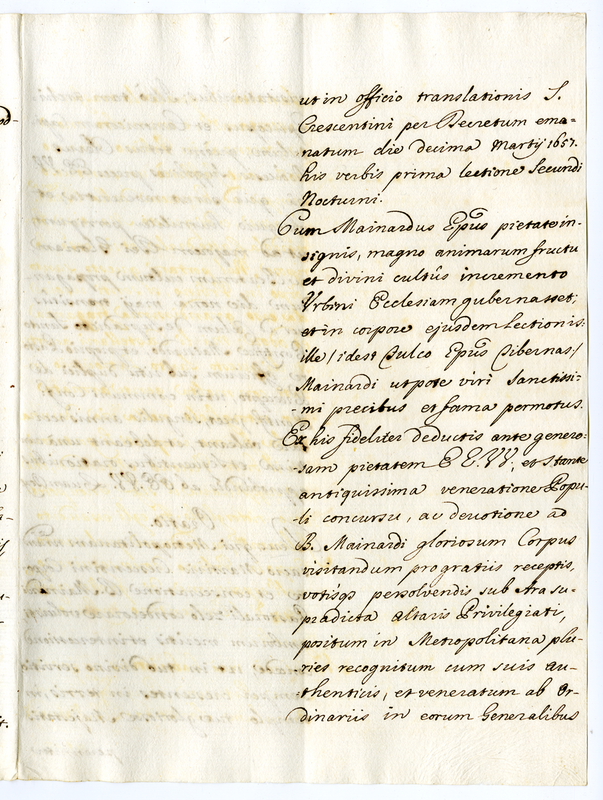 ut in officio translationis S.
Crescentini per Decretum ema=
natum die decima Martij 1657.
his verbis prima lectione Secundi
Nocturni.
Cum Mainardus Epũs pietate in-
signis, magno animarum fructu
et divini cultûs incremento
Urbini Ecclesiam gubernasset;
et in corpore ejusdem Lectionis:
ille / idest Sulco Epũs /
Mainardi utpote viri Sanctissi-
-mi precibus et fama permotus.
Ex his fideliter deductis ante genero-
-sam pietatem E E. VV. et stante
antiquissima veneratione Popu-
-li concursu, ac devotione ad
B. Mainardi gloriosum Corpus
visitandum pro gratiis receptis,
votisqȝ persolvendis sub Ara su-
pradicta altaris Privilegiati,
positum in Metropolitana plu-
-ries recognitum cum suis au-
-thenticis, et veneratum ab Or-
dinariis in eorum Generalibus